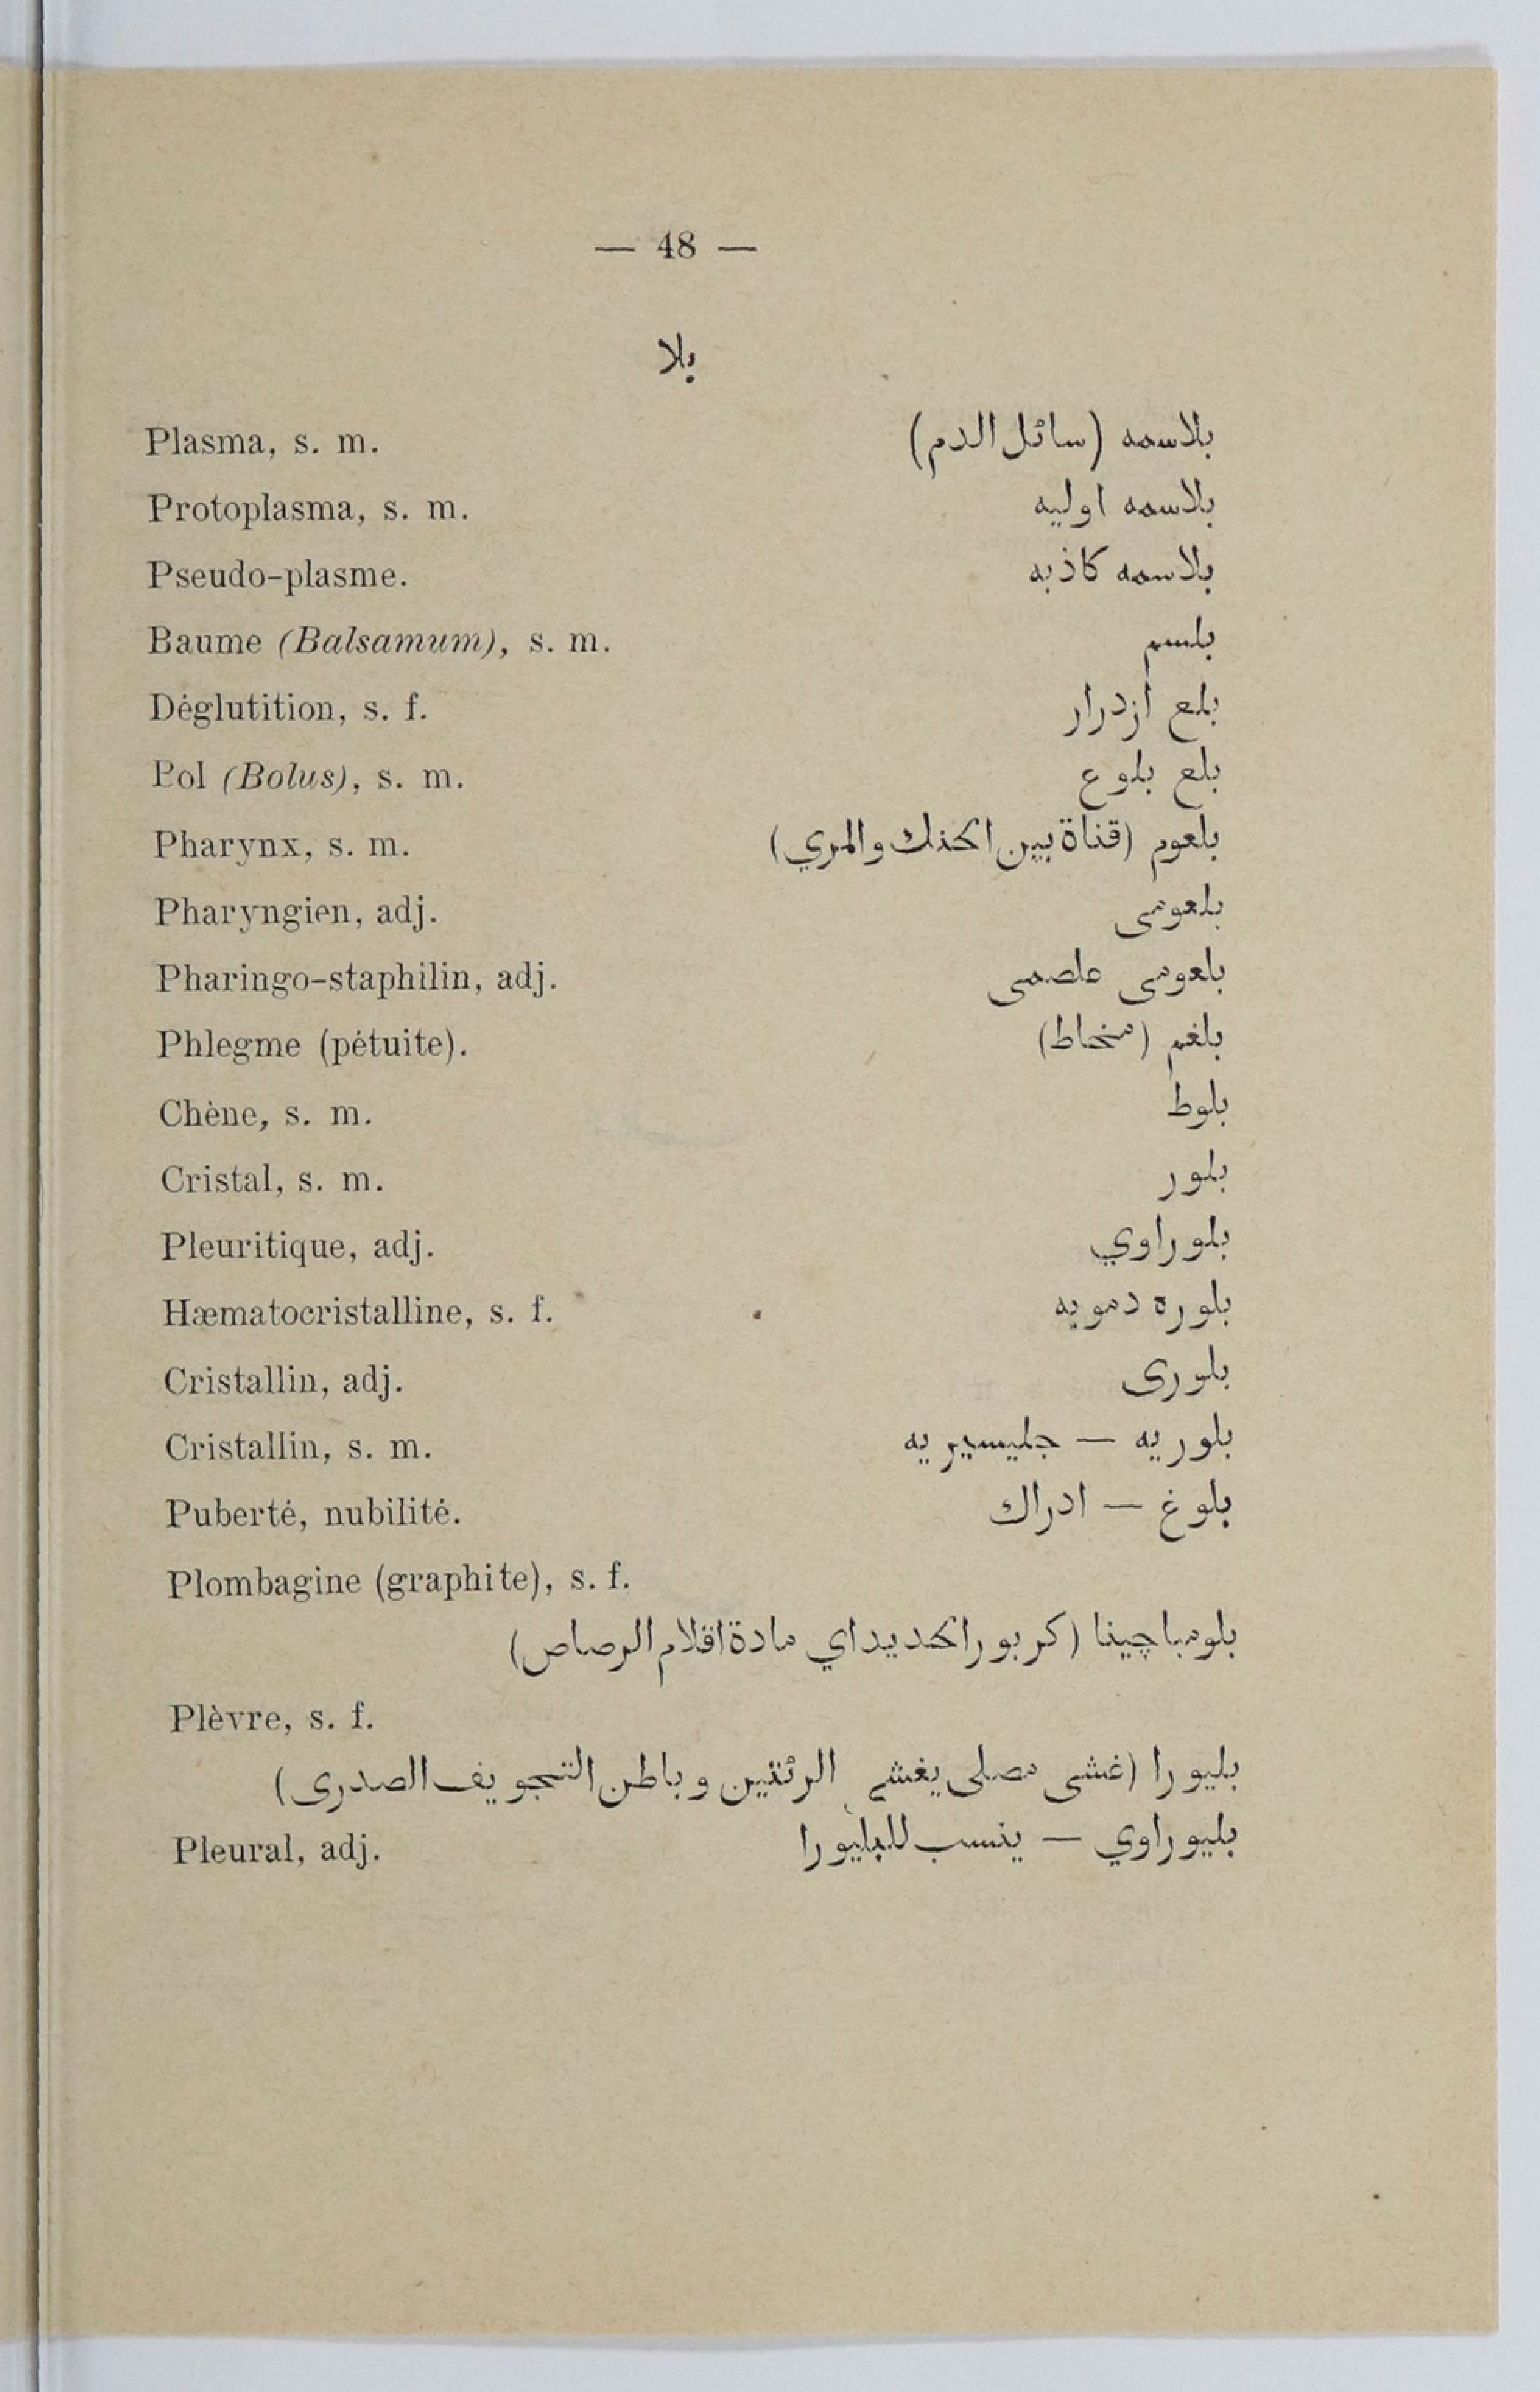 — 48 —
بلا
Plasma, s. m. بلاسمه (سائل الدم)
Protoplasma, s. m. بلاسمه اوليه
Pseudo-plasme. بلاسمه كاذبه
Baume (Balsamum), s. m. بلسم
Déglutition, s. f. بلع ازدرار
Bol (Bolus), s. m. بلع بلوع
Pharynx, s. m. بلعوم (قناة بين الحنك والمري)
Pharyngien, adj. بلعومى
Pharingo-staphilin, adj. بلعومى علصمى
Phlegme (pétuite). بلغم (مخاط)
Chêne, s. m. بلوط
Cristal, s. m. بلور
Pleuritique, adj. بلوراوي
Hæmatocristalline, s. f. بلوره دمويه
Cristallin, adj. بلورى
Cristallin, s. m. بلوريه — جليسيريه
Puberté, nubilité. بلوغ — ادراك
Plombagine (graphite), s. f.
بلومباچينا (كربور الحديد اي مادة اقلام الرصاص)
Plèvre, s. f.
بليورا (غشى مصلى يغشى الرئتين وباطن التجويف الصدرى)
Pleural, adj. بليوراوي — ينسب للبليورا